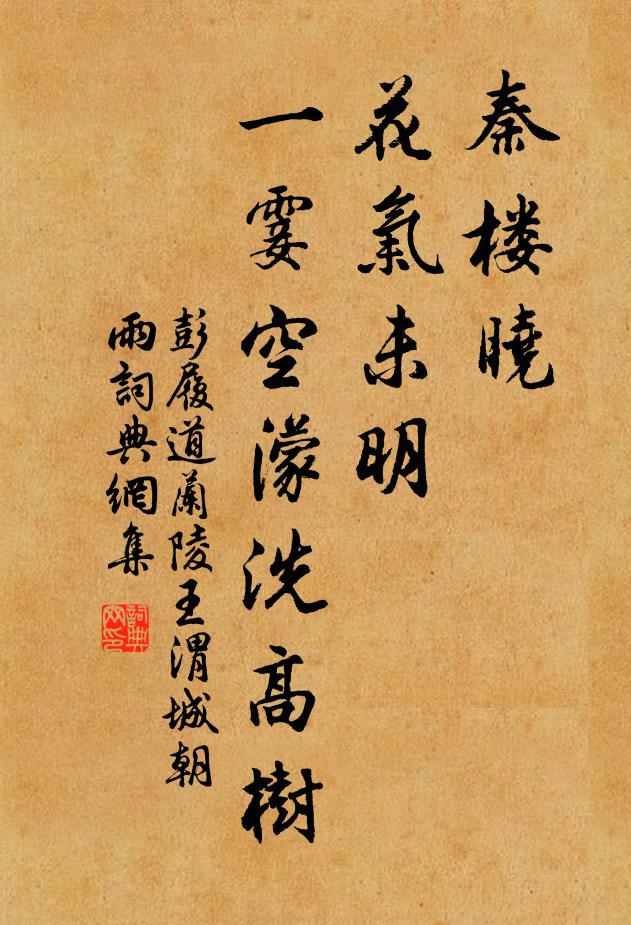 秦楼曉
花氣未明
一霎空濛洗高樹
彭履道蘭陵王渭城朝
雨詞典網集
詞典
网印